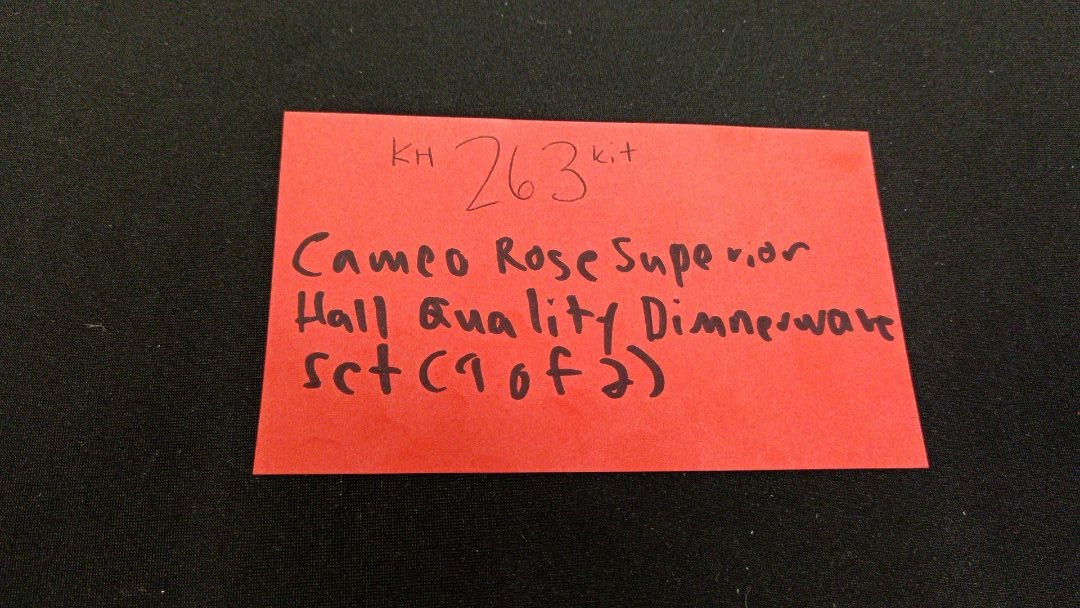 KH 263 kit
Cameo Rose Superior
Hall Quality Dinnerware
set (1 of 2)